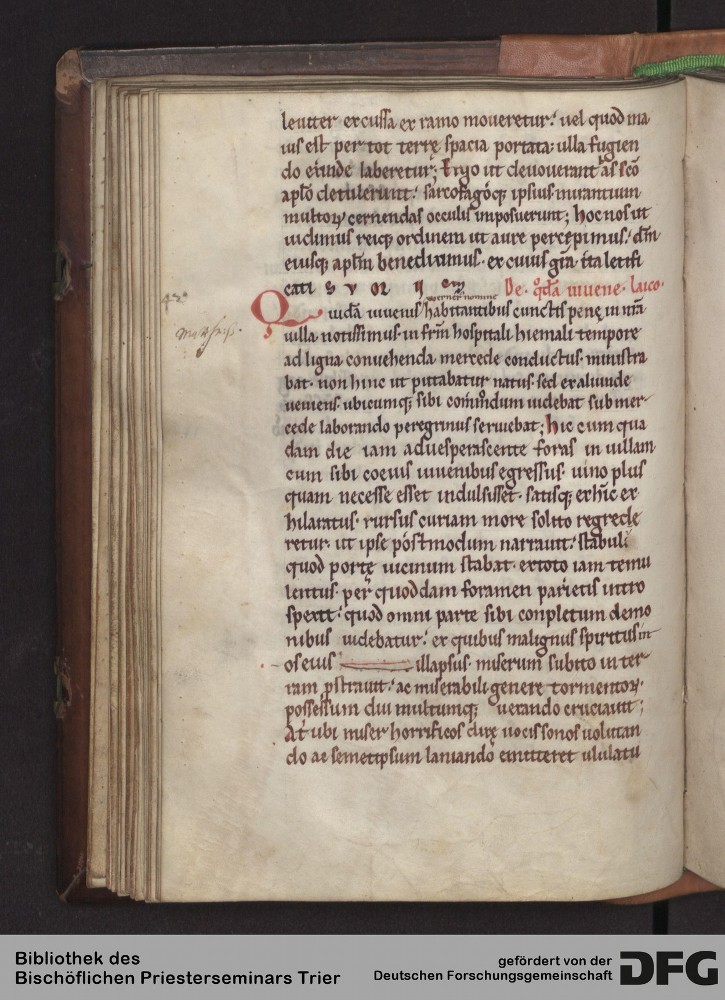 leuiter excussa ex ramo moueretur. uel quod ma
ius est per tot terrę spacia portata: ulla fugien
do exinde laberetur; Ergo ut deuouerant as scō
aplō detulerunt. sarcofagoq; ipsius mirantium
multoꝝ cernendas occulis imposuerunt; hoc nos ut
uidimus reiq; ordinem ut aure percępimus. dn̄m
eiusq; aplm̄ benediximus. ex cuius gr̄a ita letifi
cati sumus
De qdā iuuene laico.
werner nomine
42
Quidā iuuenis habitantibus cunctis penę in nrā
uilla notissimus. in frm̄ hospitali hiemali tempore
ad ligna conuehenda mercede conductus. ministra
bat. non hinc ut putabatur natus. sed ex aliunde
ueniens. ubicumq; sibi com̄odum uidebat sub mer
cede laborando peregrinus seruiebat; hic cum qua
dam die iam aduesperascente foras in uillam
cum sibi coeuis iuuenibus egressus. uino plus
quam necesse esset indulsisset. satisq; ex hīc ex
hilaratus. rursus curiam more solito regrede
retur. ut ipse postmodum narrauit. stabulū
quod portę uicinum stabat. ex toto iam temu
lentus. per quoddam foramen parietis intro
spexit. quod omni parte sibi conpletum demo
nibus uidebatur. ex quibus malignus spiritus in
os eius illapsus. miserum subito in ter
ram pstrauit. ac miserabili genere tormentoꝝ.
possessum diu multumq; uexando cruciauit;
At ubi miser horrificos dirę uocis sonos uolutan
do ac semetipsum laniando emitteret ululatu
Bibliothek des
Bischöflichen Priesterseminars Trier
gefördert von der
Deutschen Forschungsgemeinschaft
DFG